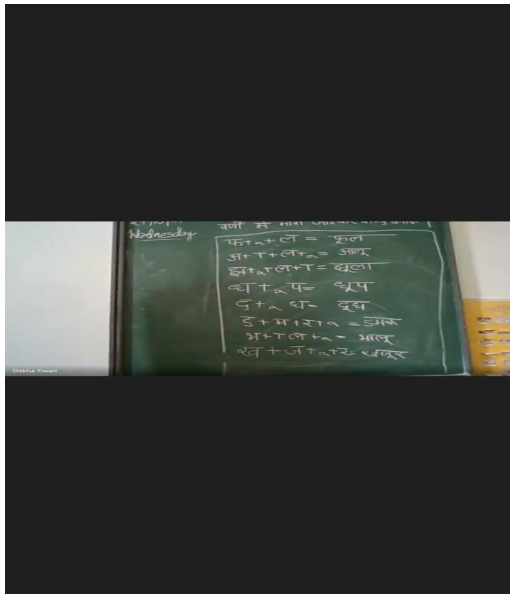 Wednesday
वर्णों में मात्रा जोड़कर शब्द
फ+ ू+ल = फूल
अ+ा+ल+ ू= आलू
झ+ ू+ल+ा= झूला
ध + ू प= धूप
द+ ू ध= दूध
ड+म+र+ ू = डमरू
भ+ा ल+ ू= भालू
ख+ज+ ू+र= खजूर
Shikha Tiwari